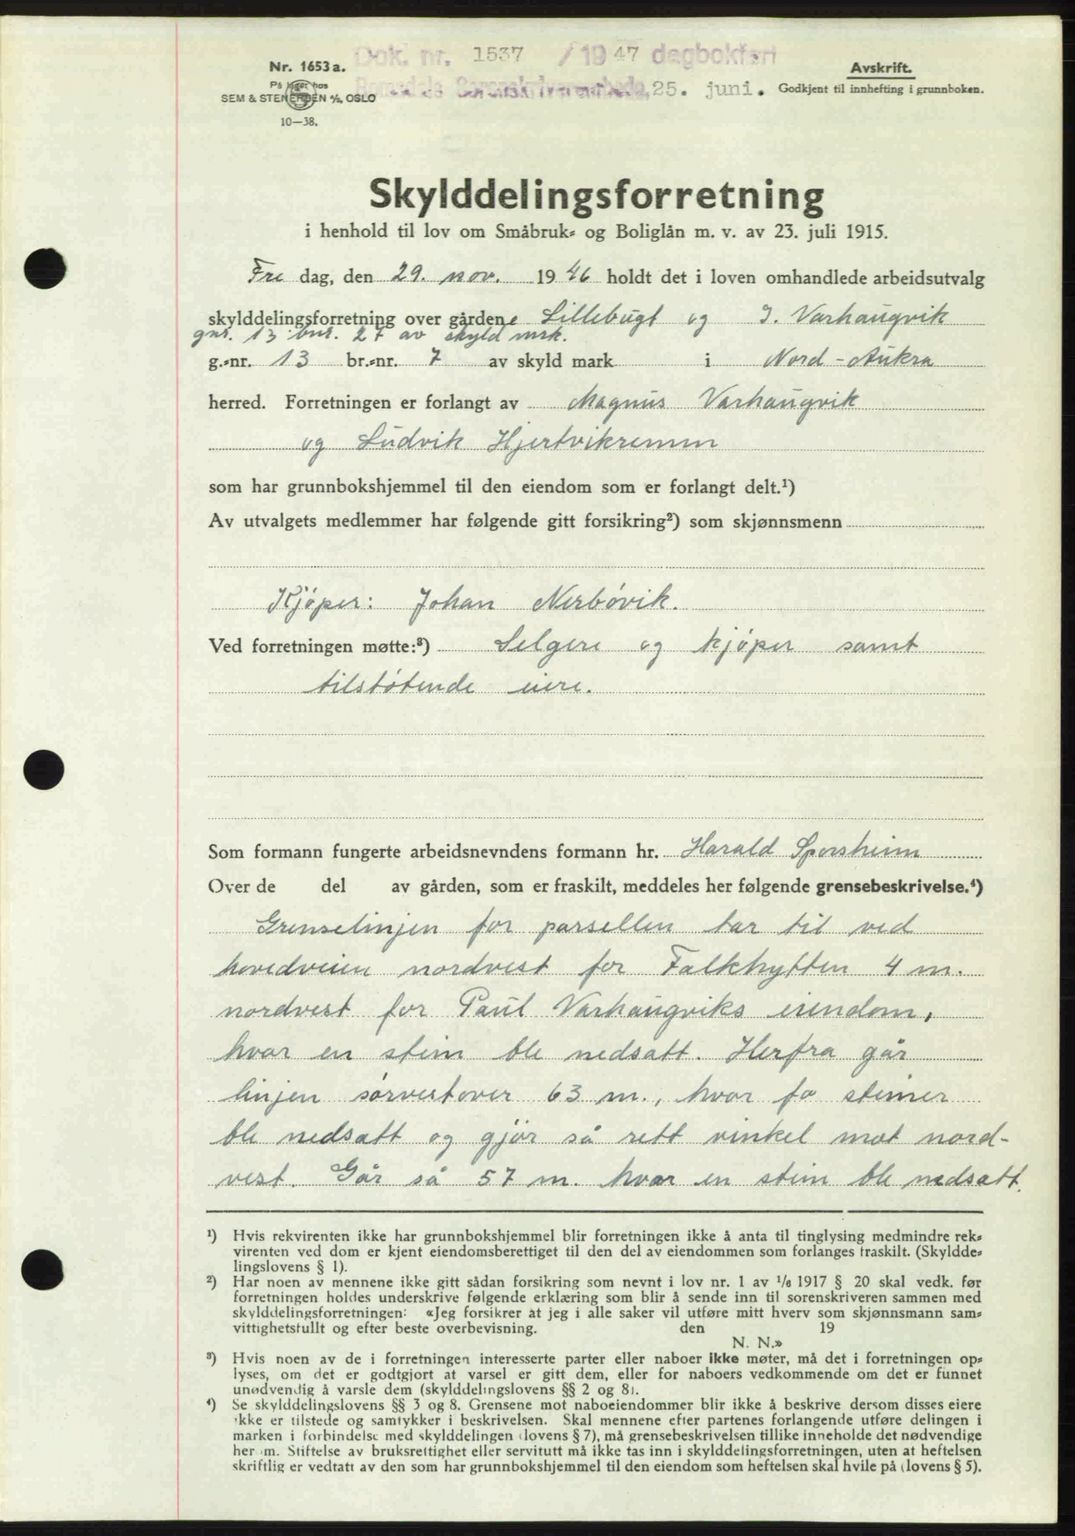 Dok. nr. 1537 / 1947 dagbokført
Nr. 1653 a.
Avskrift.
På lager hos
Romsdals Sorenskriverembede, 25. juni.
Godkjent til innhefting i grunnboken.
SEM & STENERSEN A/S, OSLO
10—38.
Skylddelingsforretning
i henhold til lov om Småbruk- og Boliglån m. v. av 23. juli 1915.
Fre dag, den 29. nov. 1946 holdt det i loven omhandlede arbeidsutvalg
skylddelingsforretning over gårdene Lillebugt og I. Varhaugvik
gnr. 13 bnr. 27 av skyld mrk.
g.-nr. 13 br.-nr. 7 av skyld mark i Nord-Aukra
herred. Forretningen er forlangt av Magnus Varhaugvik
og Ludvik Hjertvikremm
som har grunnbokshjemmel til den eiendom som er forlangt delt.¹)
Av utvalgets medlemmer har følgende gitt forsikring²) som skjønnsmenn
Kjöper: Johan Nerbövik.
Ved forretningen møtte:³) Selgere og kjöper samt
tilstötende eiere.
Som formann fungerte arbeidsnevndens formann hr. Harald Sporsheim
Over de del av gården, som er fraskilt, meddeles her følgende grensebeskrivelse.⁴)
Grenselinjen for parsellen tar til ved
hovedveien nordvest for Falkhytten 4 m.
nordvest for Paul Varhaugviks eiendom,
hvor en stein ble nedsatt. Herfra går
linjen sörvestover 63 m., hvor to steiner
ble nedsatt og gjör så rett vinkel mot nord-
vest. Går så 57 m. hvor en stein ble nedsatt.
¹) Hvis rekvirenten ikke har grunnbokshjemmel blir forretningen ikke å anta til tinglysing medmindre rek-
virenten ved dom er kjent eiendomsberettiget til den del av eiendommen som forlanges fraskilt. (Skyldde-
lingslovens § 1).
²) Har noen av mennene ikke gitt sådan forsikring som nevnt i lov nr. 1 av 1/6 1917 § 20 skal vedk. før
forretningen holdes underskrive følgende erklæring som blir å sende inn til sorenskriveren sammen med
skylddelingsforretningen: «Jeg forsikrer at jeg i alle saker vil utføre mitt hverv som skjønnsmann sam-
vittighetsfullt og efter beste overbevisning. den 19
N. N.»
³) Hvis noen av de i forretningen interesserte parter eller naboer ikke møter, må det i forretningen op-
lyses, om det er godtgjort at varsel er gitt dem, eller for naboers vedkommende om det er funnet
unødvendig å varsle dem (skylddelingslovens §§ 2 og 8).
⁴) Se skylddelingslovens §§ 3 og 8. Grensene mot naboeiendommer blir ikke å beskrive dersom disses eiere
ikke er tilstede og samtykker i beskrivelsen. Skal mennene efter partenes forlangende utføre delingen i
marken i forbindelse med skylddelingen (lovens § 7), må grensebeskrivelsen tillike inneholde det nødvendige
her om. Stiftelse av bruksrettighet eller servitutt må ikke tas inn i skylddelingsforretningen, uten at heftelsen
skriftlig er vedtatt av den som har grunnbokshjemmel til den eiendom som heftelsen skal hvile på (lovens § 5).